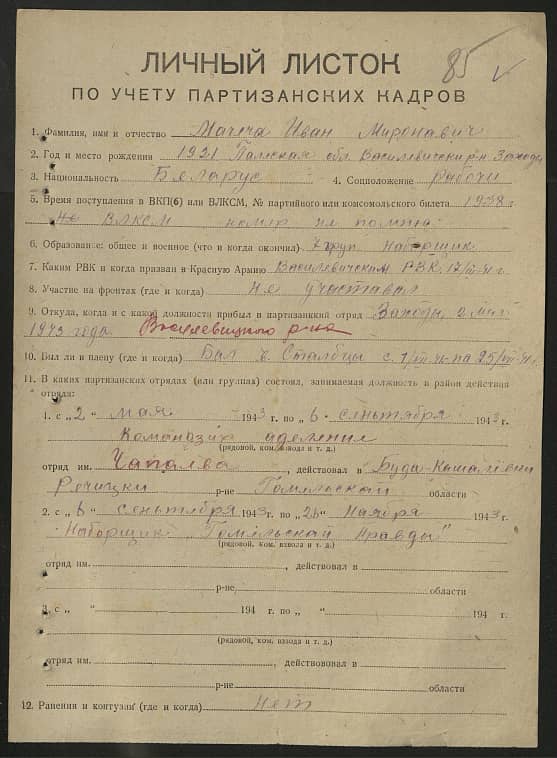 85
ЛИЧНЫЙ ЛИСТОК
ПО УЧЕТУ ПАРТИЗАНСКИХ КАДРОВ
1. Фамилия, имя и отчество Иван Миронавич
2. Год и место рождения 1921 обл. Василевичски р-н
3. Национальность Беларус 4. Соцположение рабочи
5. Время поступления в ВКП(б) или ВЛКСМ, № партийного или комсомольского билета 1938 г.
ВЛКСМ номер не помню
6. Образование: общее и военное (что и когда окончил) 7 груп. наборщик
7. Каким РВК и когда призван в Красную Армию Василевичским РВК
8. Участие на фронтах (где и когда) не участвал
9. Откуда, когда и с какой должности прибыл в партизанский отряд 2 мая
1943 года. Василевицкого р-на
10. Был ли в плену (где и когда) Был в Сталбцы с
11. В каких партизанских отрядах (или группах) состоял, занимаемая должность и район действия
отряда:
1. с „2“ мая 1943 г. по „6“ сентября 1943 г.
аделения
(рядовой, ком. взвода и т. д.)
отряд им. Чапаева, действовал в Буда-Кашалевки
Речицки р-не Гомельскай области
2. с „6“ сентября 1943 г. по „26“ Ноября 1943 г.
Наборщик „Гомельскай Правды“
(рядовой, ком. взвода и т. д.)
отряд им. , действовал в
р-не области
3. с „ “ 194 г. по „ “ 194 г.
(рядовой, ком. взвода и т. д.)
отряд им. , действововал в
р-не области
12. Ранения и контузии (где и когда) нет